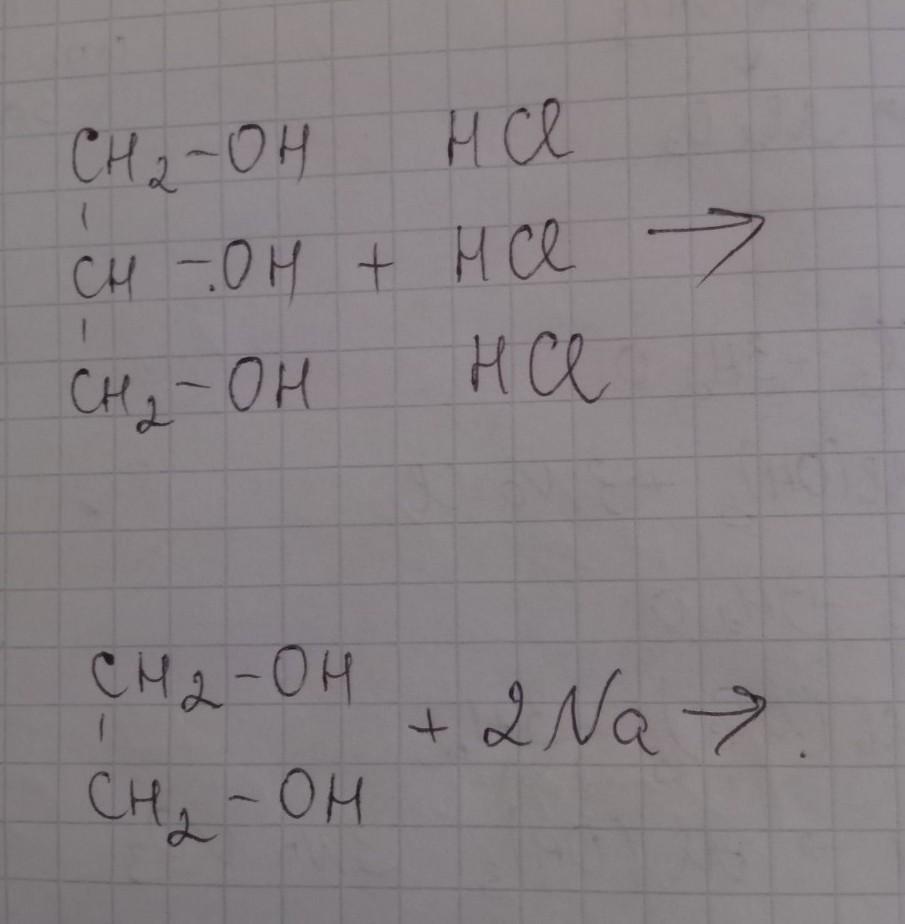 CH₂-OH HCl
CH -OH + HCl →
CH₂-OH HCl
CH₂-OH
+ 2Na →
CH₂-OH